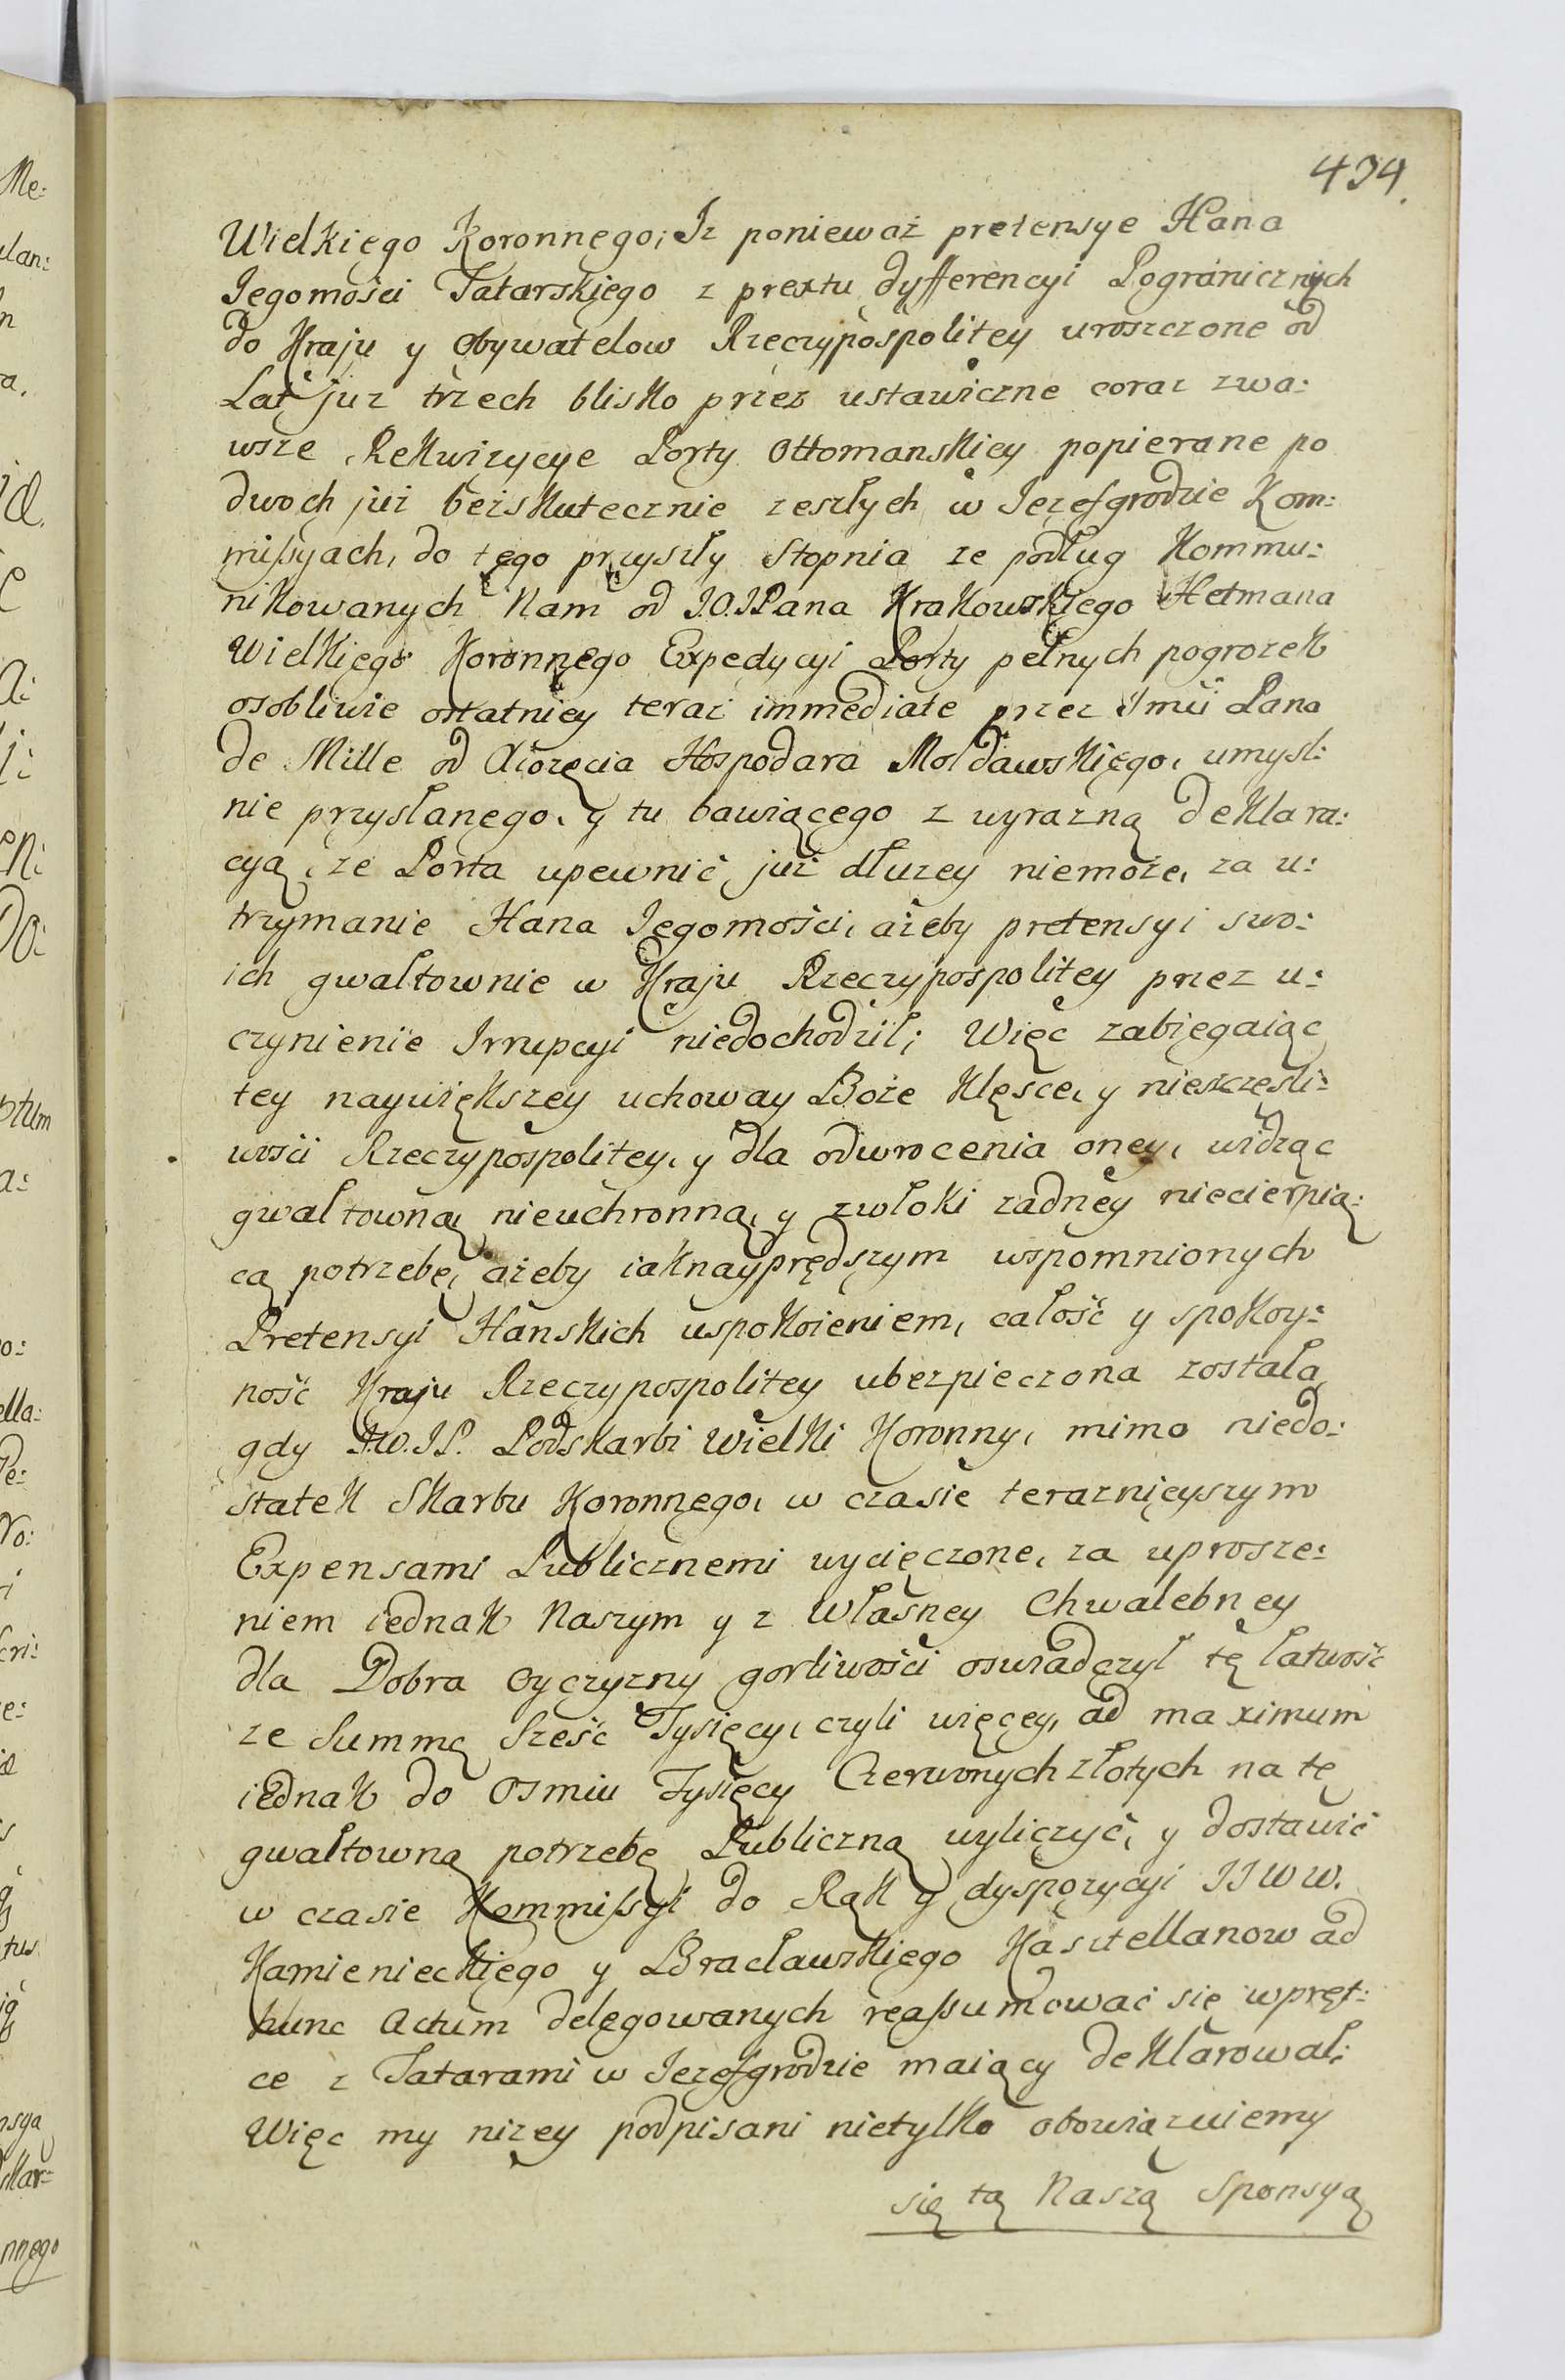 494.
Wielkiego Koronnego; Iz ponieważ pretensye Hana
Jegomości Tatarskiego z prextu dyfferencyi Pogranicznych
do Kraju y Obywatelow Rzeczypospolitey uroszczone od
Lat juz trzech blisko przez ustawiczne coraz zwa:
wsze Rekwizycye Porty Ottomanskiey popierane po
dwoch już bezskutecznie zeszłych w Jezefgrodzie Kom:
missyach, do tego przyszły Stopnia ze podług Kommu:
nikowanych Nam od J.O.JPana Krakowskiego Hetmana
Wielkiego Koronnego Expedycyi Porty pełnych pogrozek
osobliwie ostatniey teraz immediate przez Jmci Pana
de Mille od Xiozęcia Hospodara Mołdawskiego, umysl:
nie przysłanego, y tu bawiącego z wyrazną deklara:
cyą, ze Porta upewnić już dłuzey niemoże, za u:
trzymanie Hana Jegomości, ażeby pretensyi swo:
ich gwałtownie w Kraju Rzeczypospolitey przez u:
czynienie Irrupcyi niedochodził; Więc zabiegaiąc
tey naywiększey uchoway Boże klęsce, y nieszczęśli:
wości Rzeczypospolitey, y dla odwrocenia oney, widząc
gwałtowną, nieuchronną, y zwłoki zadney niecierpią:
cą potrzebę, ażeby iaknayprędszym wspomnionych
Pretensyi Hanskich uspokoieniem, całość y spokoy:
ność Kraju Rzeczypospolitey ubezpieczona została
gdy J.W.JP. Podskarbi Wielki Koronny, mimo niedo:
statek Skarbu Koronnego, w czasie terazniejszym
Expensami Publicznemi wycięczone, za uprosze:
niem iednak Naszym y z własney Chwalebney
dla Dobra Oyczyzny gorliwości oswiadczył tę łatwość
ze Summę Sześć Tysięcy, czyli więcey, ad maximum
iednak do Osmiu Tysięcy Czerwonych złotych na tę
gwałtowną potrzebę Publiczną wyliczyć, y dostawić
w czasie Kommissyi do Rąk y dyspozycyi JJWW.
Kamienieckiego y Bracławskiego Kasztellanow ad
hunc Actum delegowanych reassumować się wpręt:
ce z Tatarami w Jezefgrodzie maiący deklarował;
Więc my nizey podpisani nietylko obowiązuiemy
się tą Naszą Sponsyą